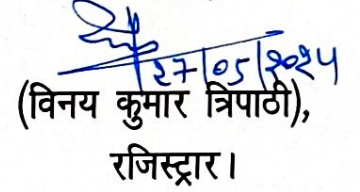 27/05/२०२५
(विनय कुमार त्रिपाठी),
रजिस्ट्रार।